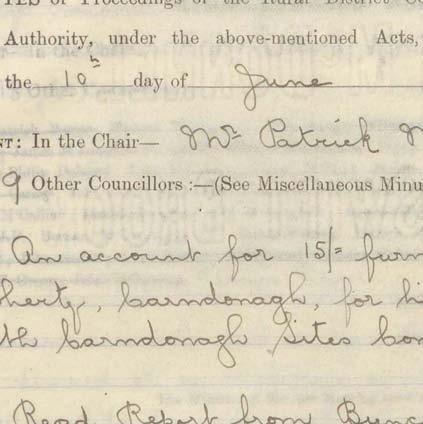 of Proceedings of the Rural District
Authority, under the above-mentioned Acts,
the 10h day of June
NT: In the Chair— Mr Patrick
9 Other Councillors :—(See Miscellaneous Minu
An account for 15/= furn
herty, Carndonagh, for hi
th Carndonagh Sites Com
Read Report from Bunc